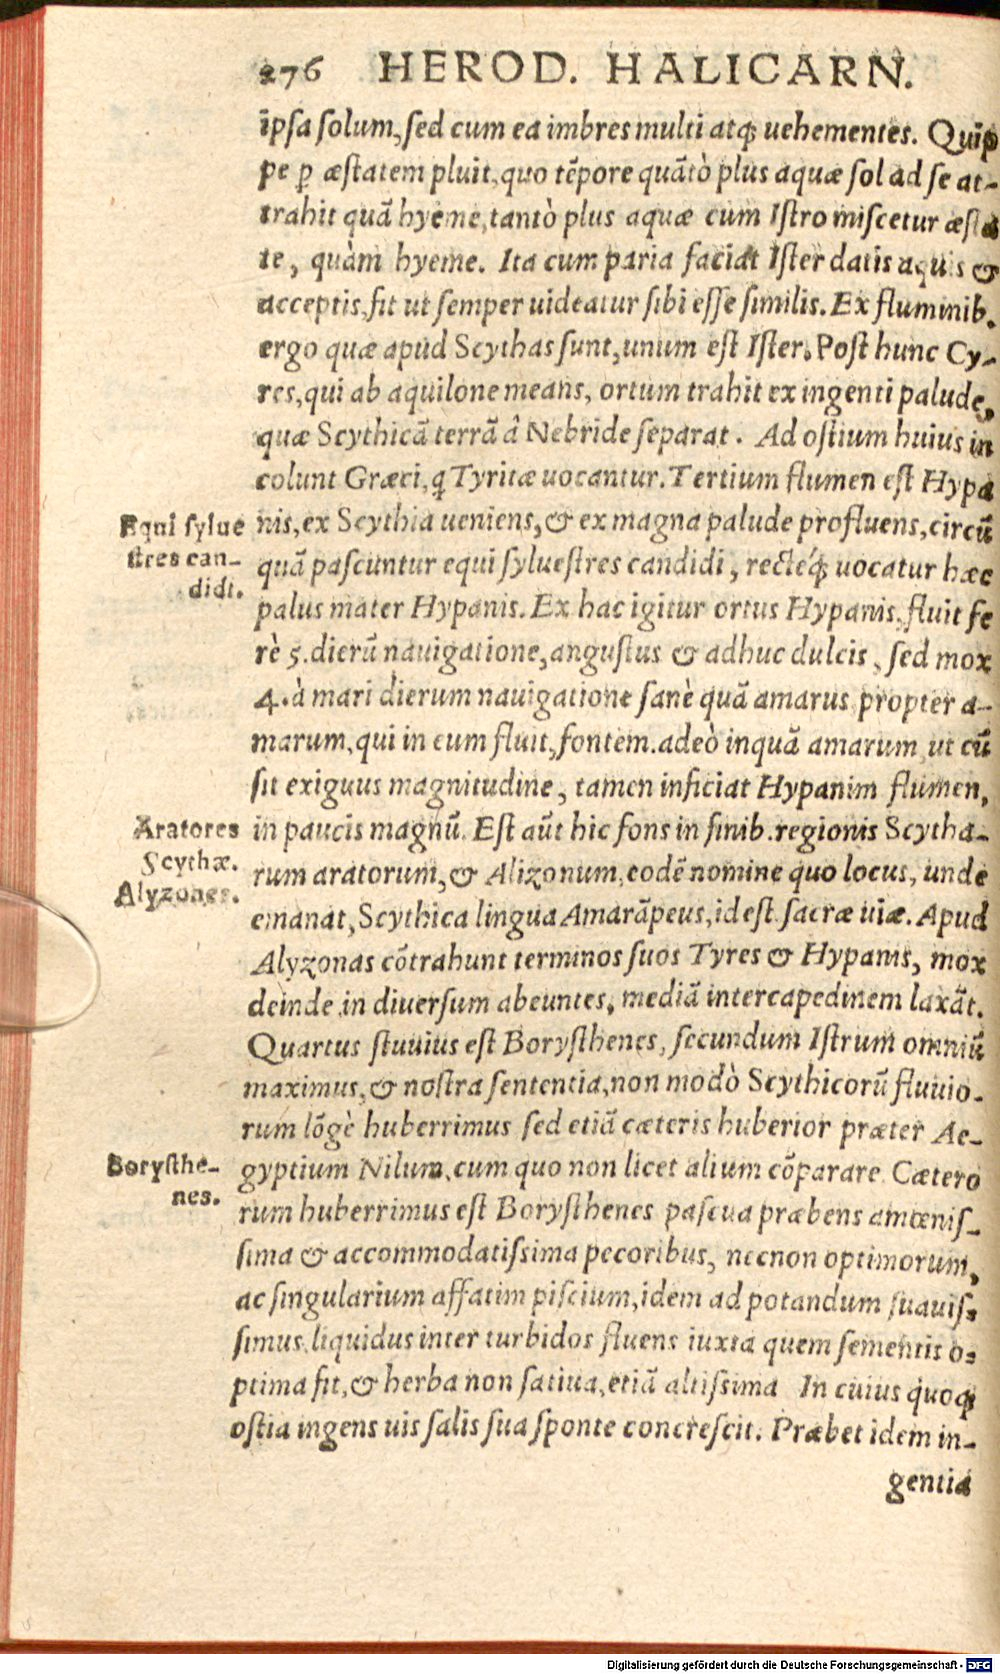 276 HEROD. HALICARN.
ipsa solum, sed cum ea imbres multi atqꝫ uehementes. Quip
pe ꝑ æstatem pluit, quo tẽpore quãtò plus aquæ sol ad se at-
trahit quã hyeme, tantò plus aquæ cum Istro miscetur æsta
te, quàm hyeme. Ita cum paria faciat Ister datis aquis &
acceptis, fit ut semper uideatur sibi esse similis. Ex fluminib.
ergo quæ apud Scythas sunt, unum est Ister. Post hunc Cy-
res, qui ab aquilone means, ortum trahit ex ingenti palude,
quæ Scythicã terrã â Nebride separat. Ad ostium huius in
colunt Græci, q̃ Tyritæ uocantur. Tertium flumen est Hypa
Equi sylue
stres can-
didi.
nis, ex Scythia ueniens, & ex magna palude profluens, circũ
quã pascuntur equi syluestres candidi, recteq́ꝫ uocatur hæc
palus mater Hypanis. Ex hac igitur ortus Hypanis, fluit fe
rè 5. dierũ nauigatione, angustus & adhuc dulcis, sed mox
4. à mari dierum nauigatione sanè quã amarus propter a-
marum, qui in eum fluit, fontem. adeò inquã amarum ut cũ
sit exiguus magnitudine, tamen inficiat Hypanim flumen,
Aratores
Scythæ.
Alyzones.
in paucis magnũ. Est aũt hic fons in finib. regionis Scytha-
rum aratorum, & Alizonum, eodẽ nomine quo locus, unde
emanat, Scythica lingua Amarãpeus, id est sacræ uiæ. Apud
Alyzonas cõtrahunt terminos suos Tyres & Hypanis, mox
deinde in diuersum abeuntes, mediã intercapedinem laxãt.
Quartus fluuius est Borysthenes, secundum Istrum omniũ
maximus, & nostra sententia, non modò Scythicorũ fluuio-
rum lõgè huberrimus sed etiã cæteris huberior præter Ae-
Borysthe-
nes.
gyptium Nilum, cum quo non licet alium cõparare. Cætero
rum huberrimus est Borysthenes pascua præbens amœnis-
sima & accommodatissima pecoribus, necnon optimorum,
ac singularium affatim piscium, idem ad potandum suauis-
simus, liquidus inter turbidos fluens iuxta quem sementis o-
ptima fit, & herba non satiua, etiã altissima In cuius quoqꝫ
ostia ingens uis salis sua sponte concrescit. Præbet idem in-
gentia
Digitalisierung gefördert durch die Deutsche Forschungsgemeinschaft - DFG